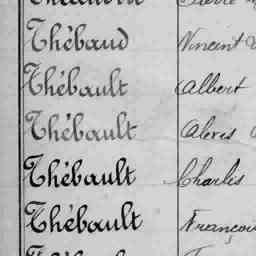 Thébaud Vincent
Thébault Albert
Thébault Alexis
Thébault Charles
Thébault François